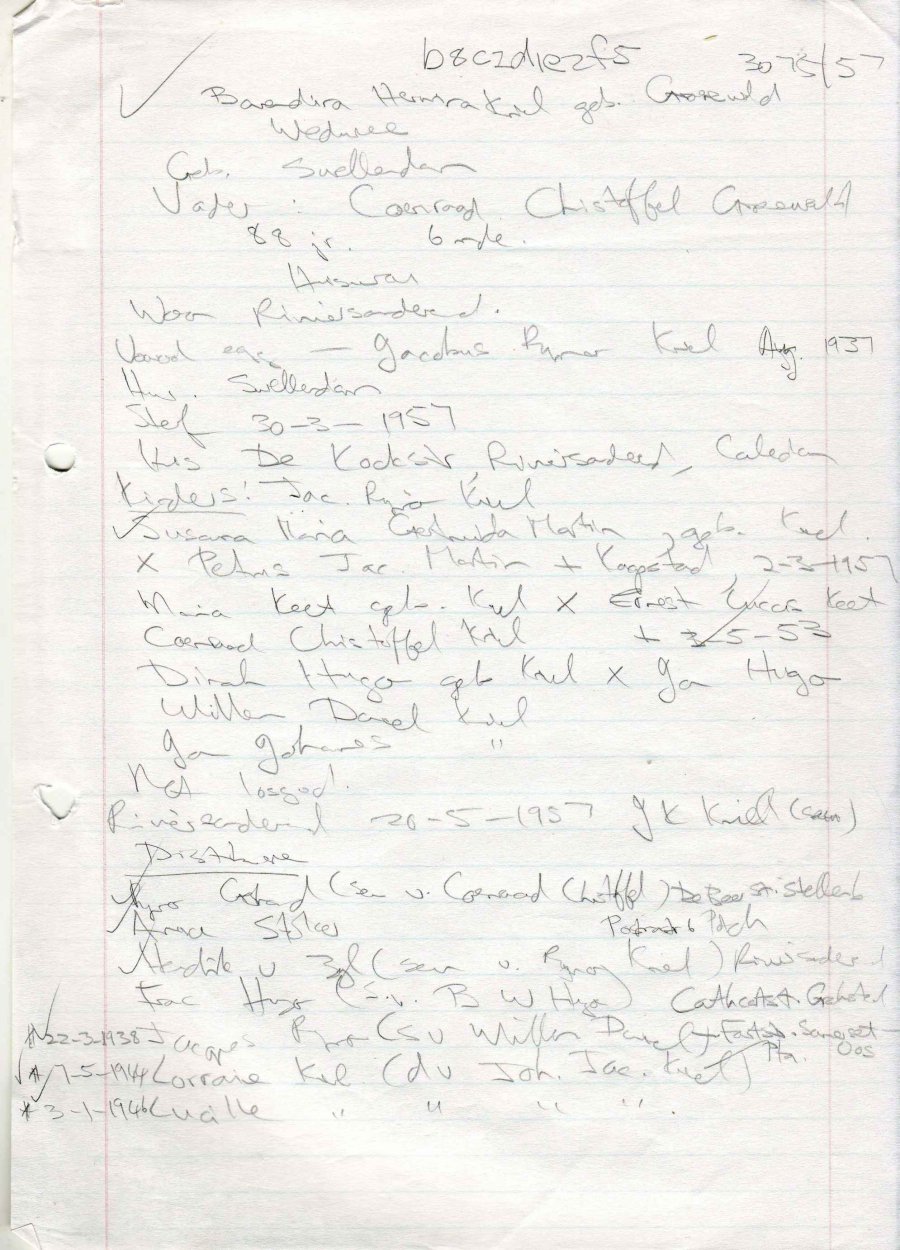 b8c2d1e2f5 3075/57
Barendina Hermina Kriel geb. Groenewald
Weduwee
Geb. Swellendam
Vader : Coenraad Christoffel Groenewald
88 jr. 6 mde.
Huisvrou
Woon Riviersonderend.
Vooroorl egg — Jacobus Rynier Kriel Aug. 1937
Huw. Swellendam
Sterf 30-3-1957
Huis De Kockstr, Riviersonderend, Caledon
Kinders: Jac. Rynier Kriel
Susanna Maria Gertruida Martin, geb. Kriel.
x Petrus Jac. Martin + Kaapstad 2-3-1957
Maria Keet geb. Kriel x Ernest Keet
Coenraad Christoffel Kriel + 3-5-53
Dinah Hugo geb Kriel x Jan Hugo
Willem Daniel Kriel
Jan Johannes "
Net losgoed.
Riviersonderend 20-5-1957 J K Kriel (seun)
Distribusie
Gerhard (seun v. Coenraad Christoffel) De Beer str. Stellenb
Potch
(seun v. Rynier Kriel) Riviersonderend
Frac Hugo (s.v. B W Hugo) Cathcartst. Grahamst
* 22-3-1938 Jacques Rynier (s v Willem Daniel) Somerset-Oos
Pta.
* 7-5-1944 Lorraine Kriel (d v Joh. Jac. Kriel)
* 3-1-1946 Lucille " " " " .